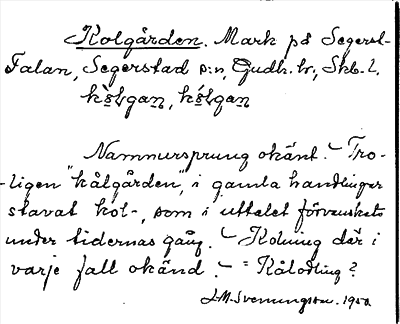 Kolgården. Mark på Segerst-
Falan, Segerstad s:n, Gudh. hr, Skb. l.
Namnursprung okänt. – Tro-
-ligen "kålgården", i gamla handlingar
stavat kol-, som i uttalet förvanskats
under tidernas gång. – Kolning där i
varje fall okänd. – = Kålodling?